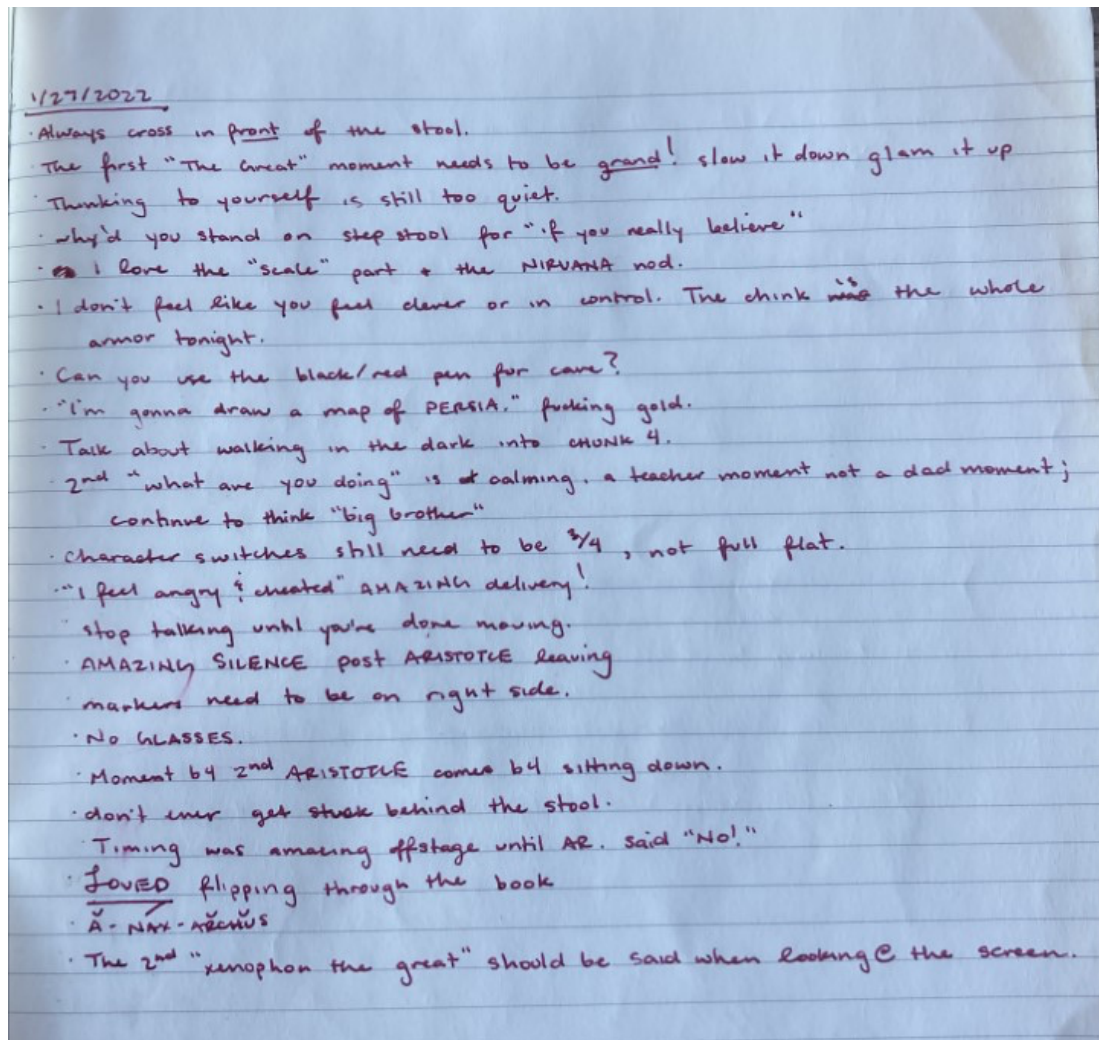 1/27/2022
· Always cross in front of the stool.
· The first "The Great" moment needs to be grand! slow it down glam it up
· Thinking to yourself is still too quiet.
· why'd you stand on step stool for "if you really believe"
· I love the "scale" part + the NIRVANA nod.
· I don't feel like you feel clever or in control. The chink is the whole
armor tonight.
· Can you use the black/red pen for cave?
· "I'm gonna draw a map of PERSIA." fucking gold.
· Talk about walking in the dark into CHUNK 4.
· 2nd "what are you doing" is calming. a teacher moment not a dad moment;
continue to think "big brother"
· Character switches still need to be 3/4, not full flat.
· "I feel angry & cheated" AMAZING delivery!
· stop talking until you're done moving.
· AMAZING SILENCE post ARISTOTLE leaving
· markers need to be on right side.
· NO GLASSES.
· Moment b4 2nd ARISTOTLE comes b4 sitting down.
· don't ever get stuck behind the stool.
· Timing was amazing offstage until AR. said "No!"
· LOVED flipping through the book
· Ă - NAX - ĂRCHŬS
· The 2nd "xenophon the great" should be said when looking @ the screen.